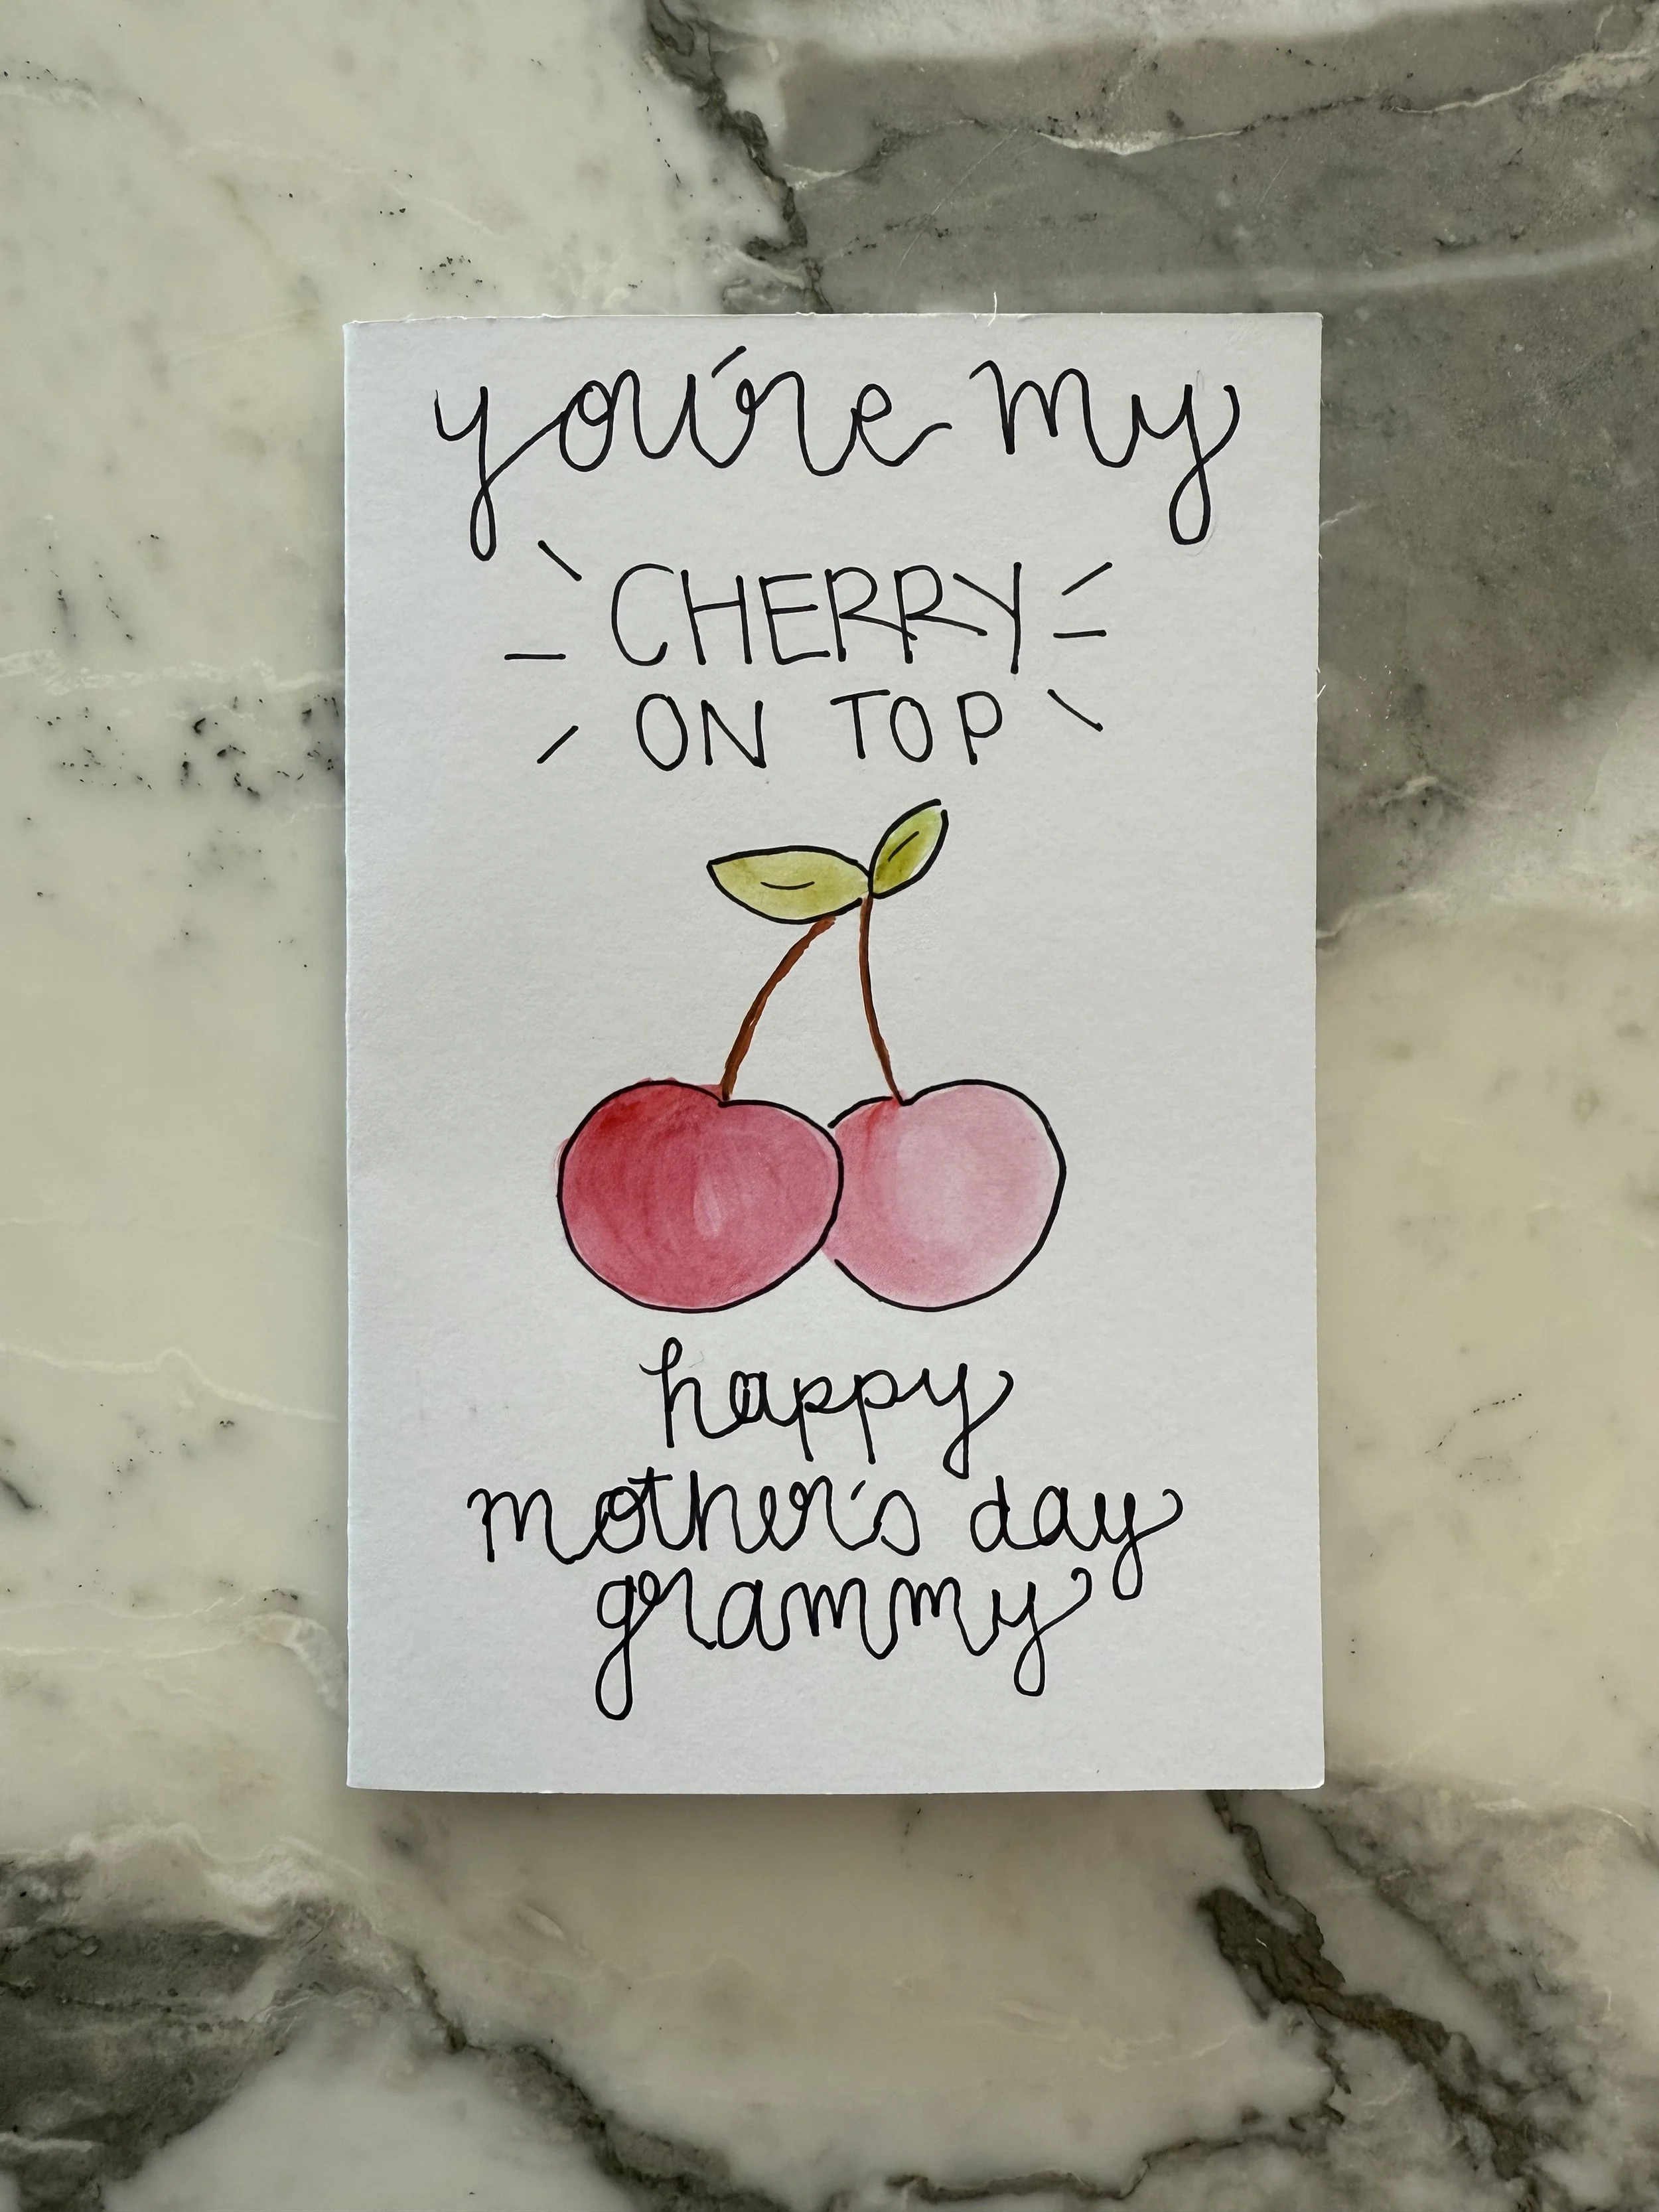 you're my
CHERRY
ON TOP
happy
mother's day
grammy